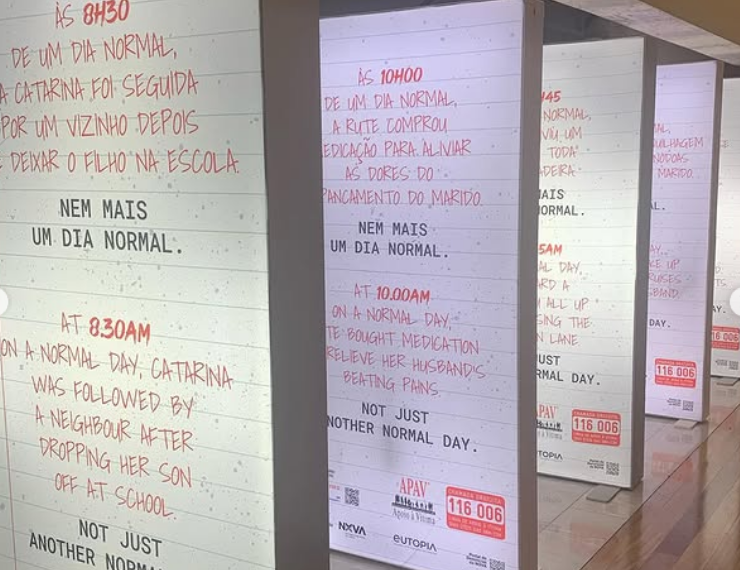 ÀS 8H30
DE UM DIA NORMAL,
A CATARINA FOI SEGUIDA
POR UM VIZINHO DEPOIS
DEIXAR O FILHO NA ESCOLA.
NEM MAIS
UM DIA NORMAL.
AT 8.30AM
ON A NORMAL DAY, CATARINA
WAS FOLLOWED BY
A NEIGHBOUR AFTER
DROPPING HER SON
OFF AT SCHOOL.
NOT JUST
ANOTHER
ÀS 10H00
DE UM DIA NORMAL,
A RUTE COMPROU
EDICAÇÃO PARA ALIVIAR
AS DORES DO
PANCAMENTO DO MARIDO.
NEM MAIS
UM DIA NORMAL.
AT 10.00AM
ON A NORMAL DAY,
TE BOUGHT MEDICATION
RELIEVE HER HUSBAND'S
BEATING PAINS.
NOT JUST
NOTHER NORMAL DAY.
APAV
Apoio à Vítima
CHAMADA GRATUITA
116 006
NOVA
eUTOPIA
H45
NORMAL,
VIU UM
TODA
ADEIRA.
AIS
ORMAL.
5AM
AL DAY,
ARD A
ALL UP
SING THE
N LANE
UST
RMAL DAY.
PAV
à Vítima
116 006
UTOPIA
AL,
UILHAGEM
NÓDOAS
MARIDO.
L.
AY,
KE UP
RUISES
SBAND.
DAY.
116 006
TS
D.
16 006